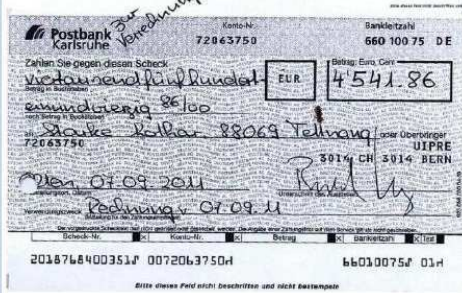 zur
Verrechnung
Postbank
Karlsruhe
Konto-Nr.
72063750
Bankleitzahl
660 100 75 DE
Zahlen Sie gegen diesen Scheck
Betrag: Euro, Cent
viertausendfünfhundert-
EUR
4'541.86
Betrag in Buchstaben
einundvierzig 86/00
noch Betrag in Buchstaben
an Starke Lothar 88069 Tettnang oder Überbringer
72063750
UIPRE
3014 CH 3014 BERN
07.09.2011
Ausstellungsort, Datum
Unterschrift des Ausstellers
Verwendungszweck
Rechnung v. 07.09.11
Scheck-Nr. X Konto-Nr. X Betrag X Bankleitzahl X Text
2018768400351 0072063750 66010075 01
Bitte dieses Feld nicht beschriften und nicht bestempeln